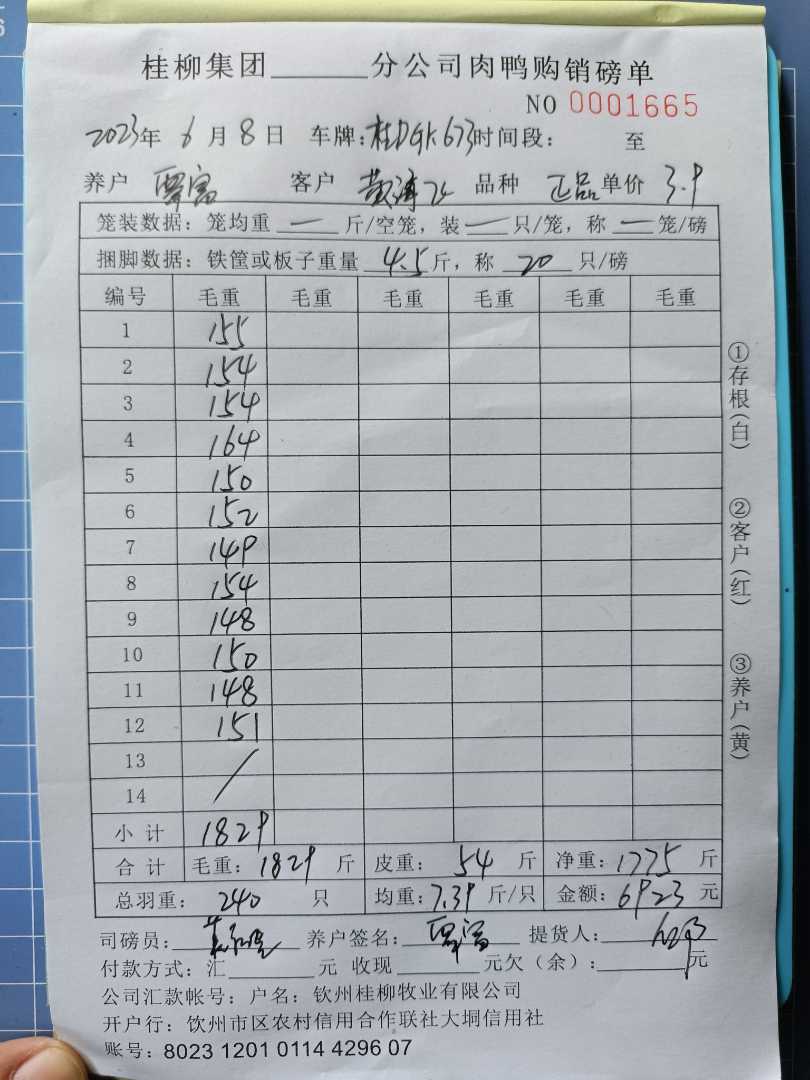 桂柳集团______分公司肉鸭购销磅单
NO 0001665
2023年 6 月 8 日 车牌:桂DGK673时间段: 至
养户 覃富 客户 品种 正品 单价 3.9
笼装数据:笼均重 — 斤/空笼,装 — 只/笼,称 — 笼/磅
捆脚数据:铁筐或板子重量 4.5 斤,称 20 只/磅
编号 毛重 毛重 毛重 毛重 毛重 毛重
1 155
2 154
3 154
4 164
5 150
6 152
7 149
8 154
9 148
10 150
11 148
12 151
13 /
14
小计 1829
合计 毛重:1829 斤 皮重:54 斤 净重:1775 斤
总羽重:240 只 均重:7.39 斤/只 金额:6923 元
司磅员: 养户签名:覃富 提货人:
付款方式:汇______元 收现______元欠(余):______元
公司汇款帐号:户名:钦州桂柳牧业有限公司
开户行:钦州市区农村信用合作联社大垌信用社
账号:8023 1201 0114 4296 07
①存根(白)
②客户(红)
③养户(黄)